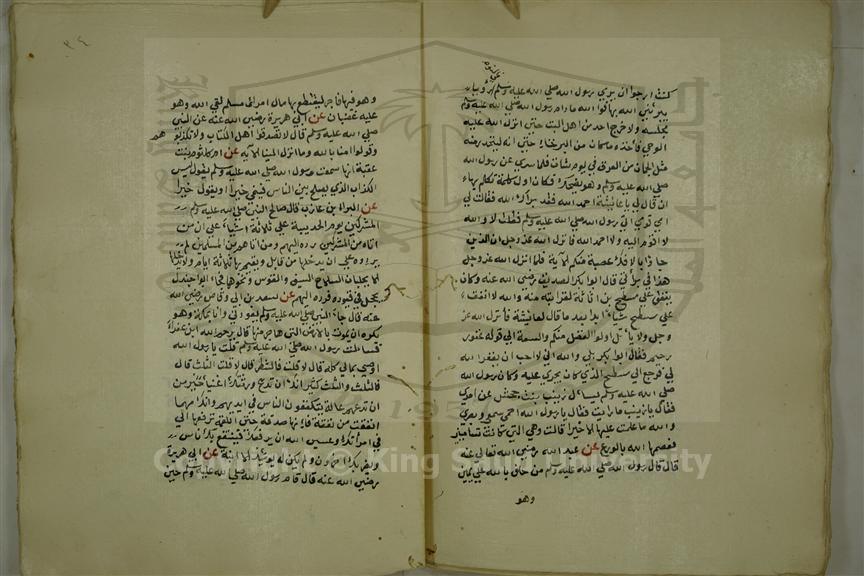 كنت ارجوا ان يري رسول الله صلي الله عليه وسلم رؤيا
يبرئني الله بها فوالله ما رام رسول الله صلي الله عليه وسلم
مجلسه ولا خرج احد من اهل البيت حتي انزل الله عليه
الوحي فاخذه ما كان من البرحاء حتي انه ليتحدر منه
مثل الجمان من العرق في يوم شات فلما سري عن رسول الله
صلي الله عليه وسلم وهو يضحك فكان اول كلمة تكلم بها
ان قال لي يا عايشة احمد الله فقد براك الله فقالت لي
امي قومي الي رسول الله صلي الله عليه وسلم فقلت لا والله
لا اقوم اليه ولا احمد الا الله فانزل الله عز وجل ان الذين
جاؤا بالافك عصبة منكم الاية فلما انزل الله عز وجل
هذا في براتي قال ابوا بكر الصديق رضي الله عنه وكان
ينفق علي مسطح بن اثاثة لقرابته منه والله لا انفق
علي مسطح شيا ابدا بعد ما قال لعايشة فانزل الله عز
وجل ولا ياتل اولوا الفضل منكم والسعة الي قوله غفور
رحيم فقال ابوا بكر بلي والله اني لا احب ان يغفر الله
لي فرجع الي مسطح الذي كان يجري عليه وكان رسول الله
صلي الله عليه وسلم يسال زينب بنت جحش عن امري
فقال يا زينب ما رايت فقال يا رسول الله احمي سمعي وبصري
والله ما علمت عليها الا خيرا قالت وهي التي كانت تساميني
فعصمها الله بالورع عن عبد الله رضي الله تعالي عنه
قال قال رسول الله صلي الله عليه وسلم من حلف بالله علي يمين
وهو
٣٤
وهو فيها فاجر ليقتطع بها مال امرا مسلم لقي الله وهو
عليه غضبان عن ابي هريرة رضي الله عنه عن النبي
صلي الله عليه وسلم قال لا تصدقوا اهل الكتاب ولا تكذبوهم
وقولوا امنا بالله وما انزل الينا الاية عن ام كلثوم بنت
عقبة انها سمعت رسول الله صلي الله عليه وسلم يقول ليس
الكذاب الذي يصلح بين الناس فينمي خيرا او يقول خيرا
عن البراء بن عازب قال صالح النبي صلي الله عليه وسلم
المشركين يوم الحديبية علي ثلاثة اشياء علي ان من
اتاه من المشركين رده اليهم ومن اتاهم من المسلمين لم
يردوه وعلي ان يدخلها من قابل ويقيم بها ثلاثة ايام ولا يدخلها
الا بجلبان السلاح السيف والقوس ونحوها فجاء ابوا جندل
يحجل في قيوده فرده اليهم عن سعد بن ابي وقاص رضي الله
عنه قال جاء النبي صلي الله عليه وسلم يعودني وانا بمكة وهو
يكره ان يموت بالارض التي هاجر منها قال يرحم الله ابن عفراء
قلت يا رسول الله
اوصي بمالي كله قال لا قلت فالشطر قال لا قلت الثلث قال
فالثلث والثلث كثير انك ان تدع ورثتك اغنياء خير من
ان تدعهم عالة يتكففون الناس في ايديهم وانك مهما
انفقت من نفقة فانها صدقة حتي اللقمة ترفعها الي
في امراتك وعسي الله ان يرفعك فينتفع بك اناس
ويضر بك اخرون ولم يكن له يومئذ الا ابنة عن ابي هريرة
رضي الله عنه قال قام رسول الله صلي الله عليه وسلم حين
Copyright © King Saud University
1957